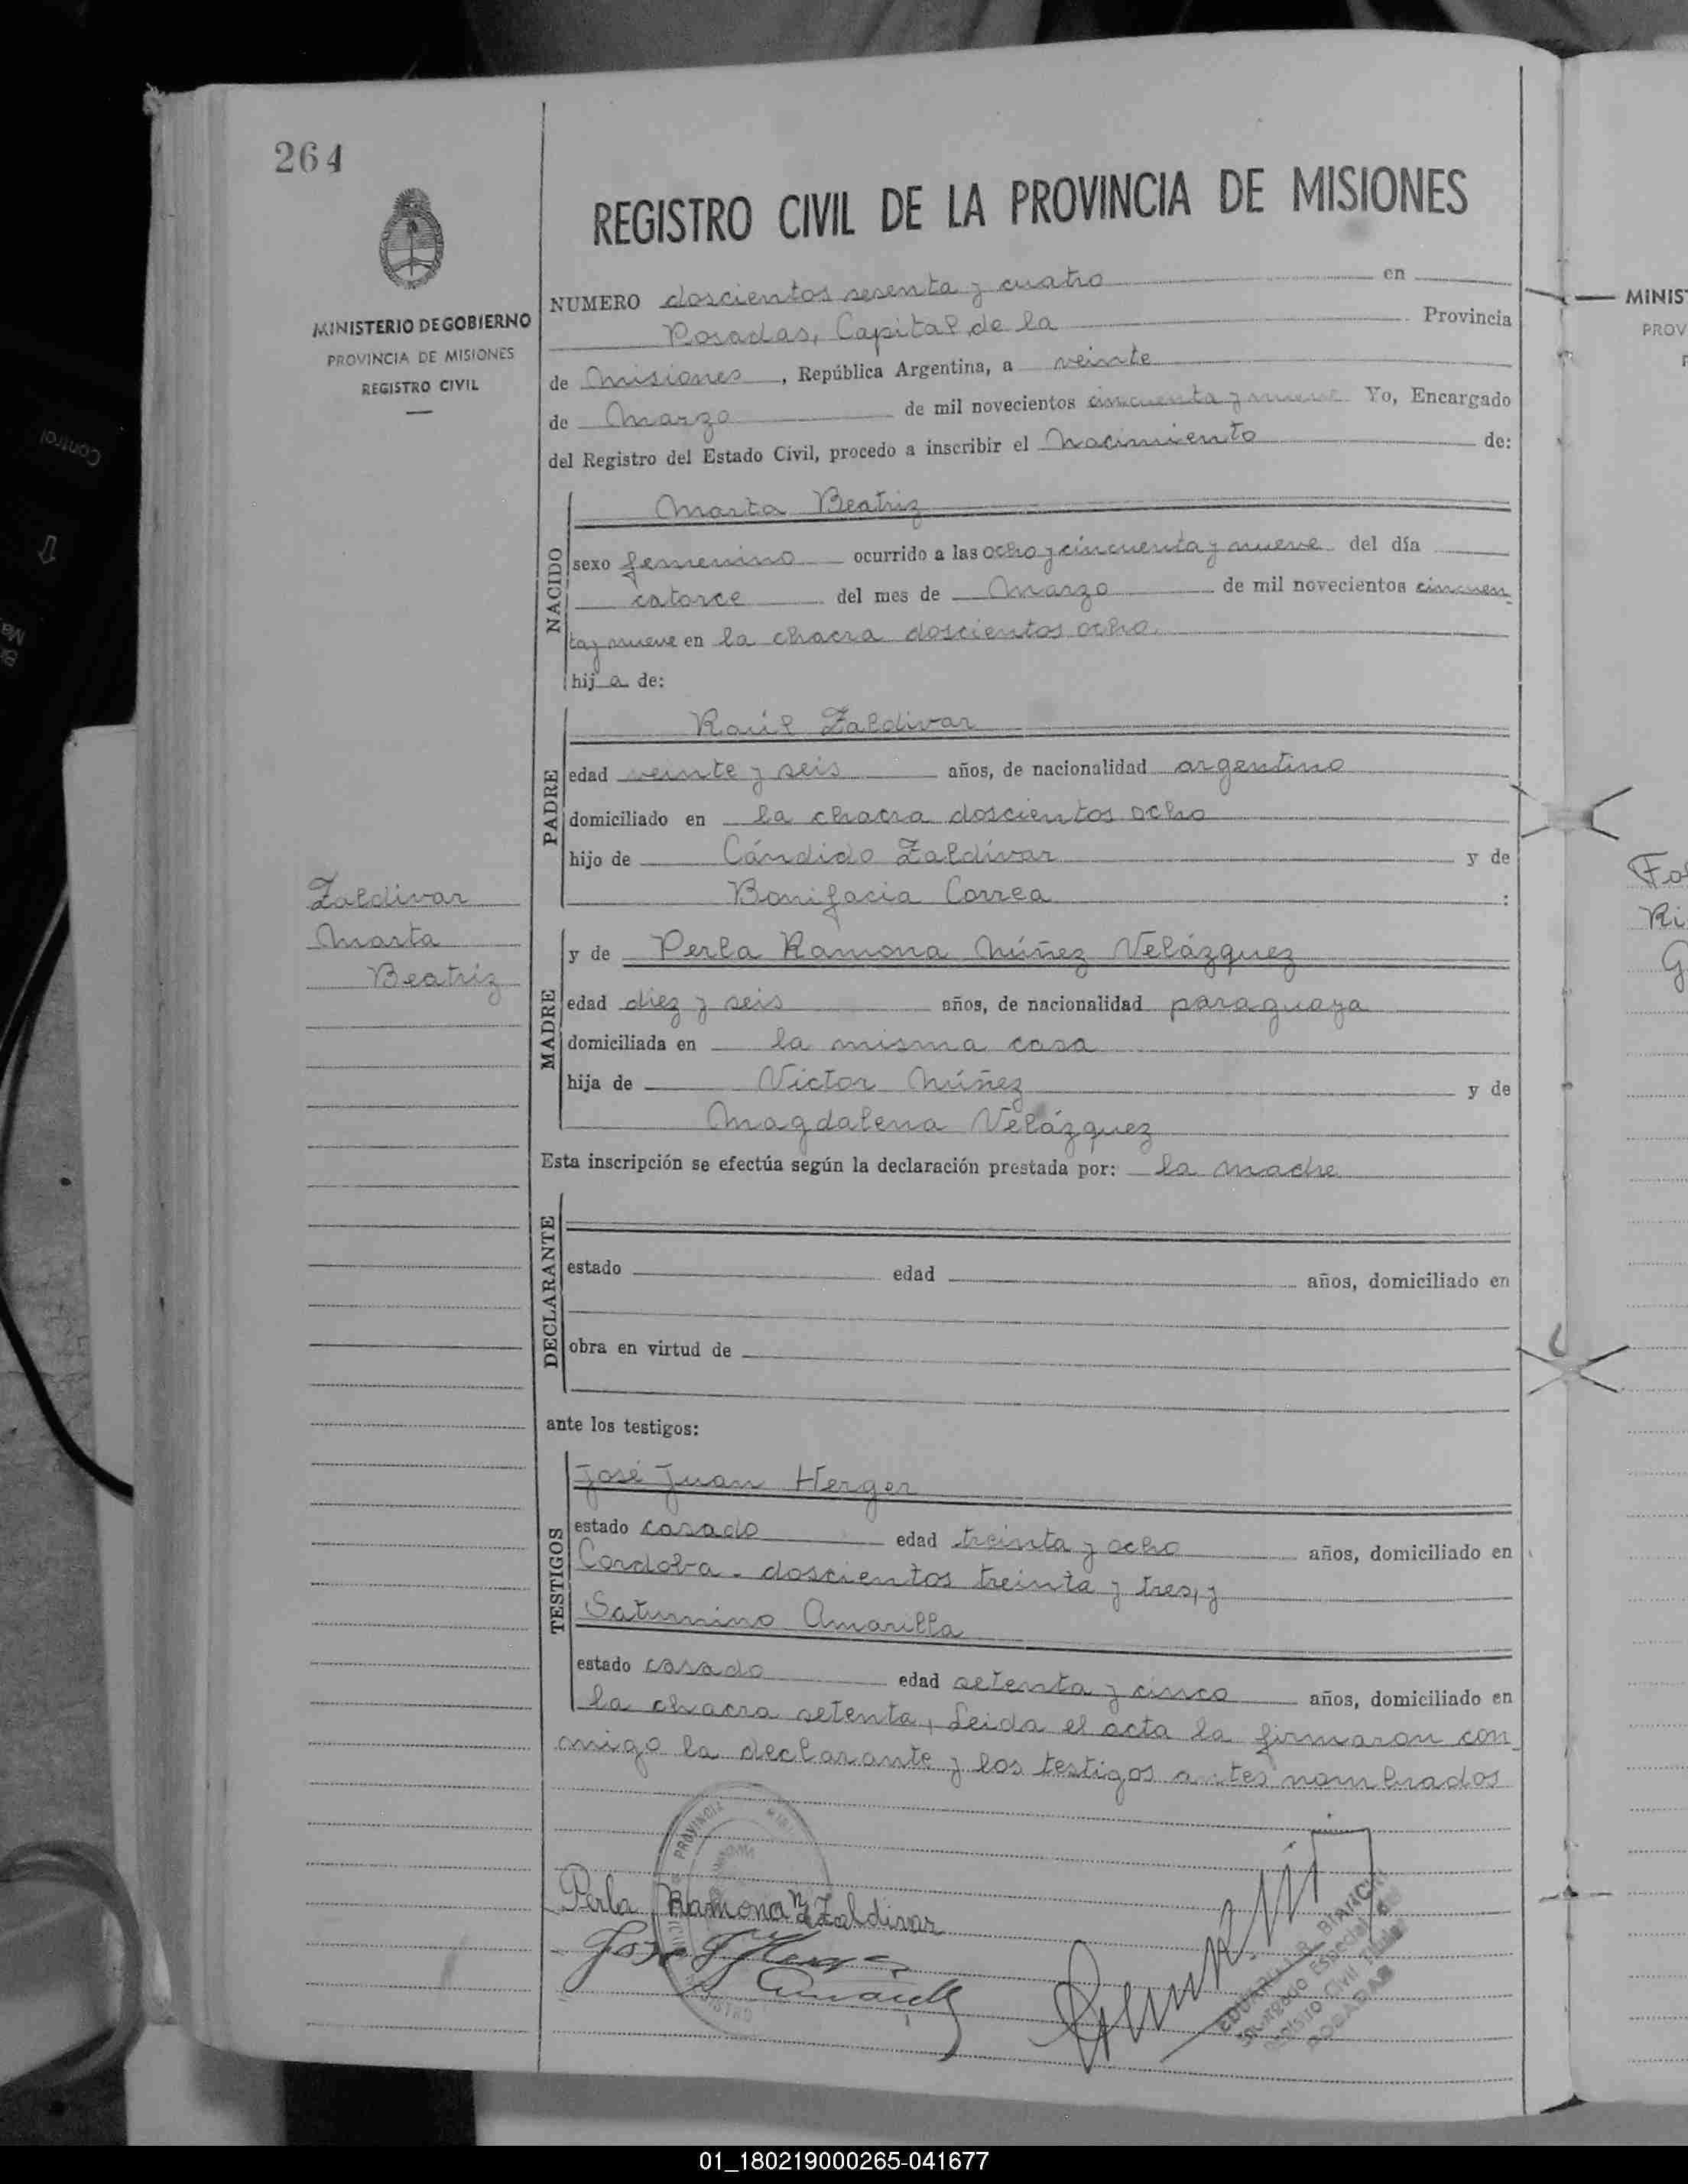 264
REGISTRO CIVIL DE LA PROVINCIA DE MISIONES
MINISTERIO DE GOBIERNO
PROVINCIA DE MISIONES
REGISTRO CIVIL
NUMERO doscientos sesenta y cuatro en
Posadas, Capital de la Provincia
de Misiones, República Argentina, a veinte
de Marzo de mil novecientos cincuenta y nueve Yo, Encargado
del Registro del Estado Civil, procedo a inscribir el Nacimiento de:
NACIDO
Marta Beatriz
sexo femenino ocurrido a las ocho y cincuenta y nueve del día
catorce del mes de Marzo de mil novecientos cincuen
ta y nueve en la chacra doscientos ocho
hija de:
PADRE
Raúl Zaldivar
edad veinte y seis años, de nacionalidad argentino
domiciliado en la chacra doscientos ocho
hijo de Cándido Zaldívar y de
Bonifacia Correa :
Zaldivar
Marta
Beatriz
MADRE
y de Perla Ramona Núñez Velázquez
edad diez y seis años, de nacionalidad paraguaya
domiciliada en la misma casa
hija de Victor Núñez y de
Magdalena Velázquez
Esta inscripción se efectúa según la declaración prestada por: la madre
DECLARANTE
estado edad años, domiciliado en
obra en virtud de
ante los testigos:
TESTIGOS
José Juan Herger
estado casado edad treinta y ocho años, domiciliado en
Cordoba - doscientos treinta y tres, y
Saturnino Amarilla
estado casado edad setenta y cinco años, domiciliado en
la chacra setenta, Leida el acta la firmaron con
migo la declarante y los testigos a tes nombrados
PROVINCIA
Perla Ramona N. de Zaldivar
Jose J Herger
Amarilla
EDUARDO R.
Encargado Especial de
Registro Civil
POSADAS
MINIS
PROV
Fa
Ri
G
Control
01_180219000265-041677